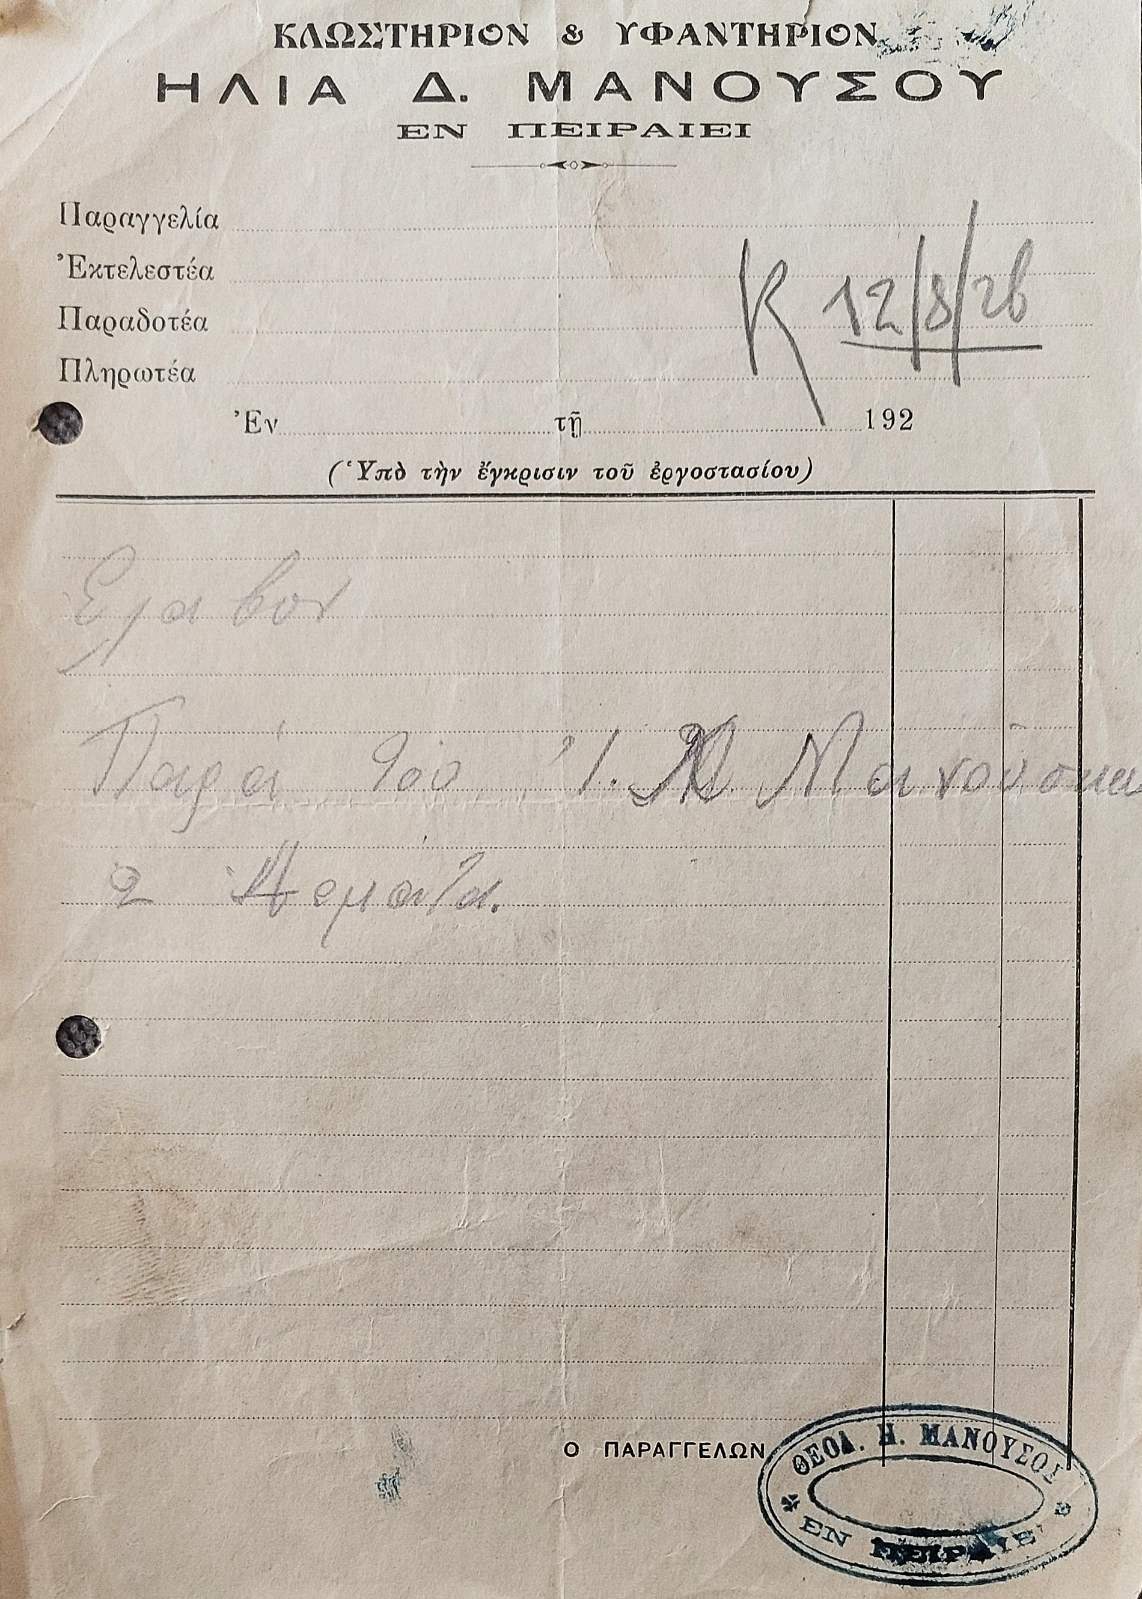 ΚΛΩΣΤΗΡΙΟΝ & ΥΦΑΝΤΗΡΙΟΝ
ΗΛΙΑ Δ. ΜΑΝΟΥΣΟΥ
ΕΝ ΠΕΙΡΑΙΕΙ
Παραγγελία
Ἐκτελεστέα
Παραδοτέα
Πληρωτέα
Κ 12/8/26
Ἐν τῇ 192
(Ὑπὸ τὴν ἔγκρισιν τοῦ ἐργοστασίου)
Ελαβον
Παρά του Ί. Μανούσκα
2
Ο ΠΑΡΑΓΓΕΛΩΝ
ΘΕΟΔ. Η. ΜΑΝΟΥΣΟΣ
ΕΝ ΠΕΙΡΑΙΕΙ